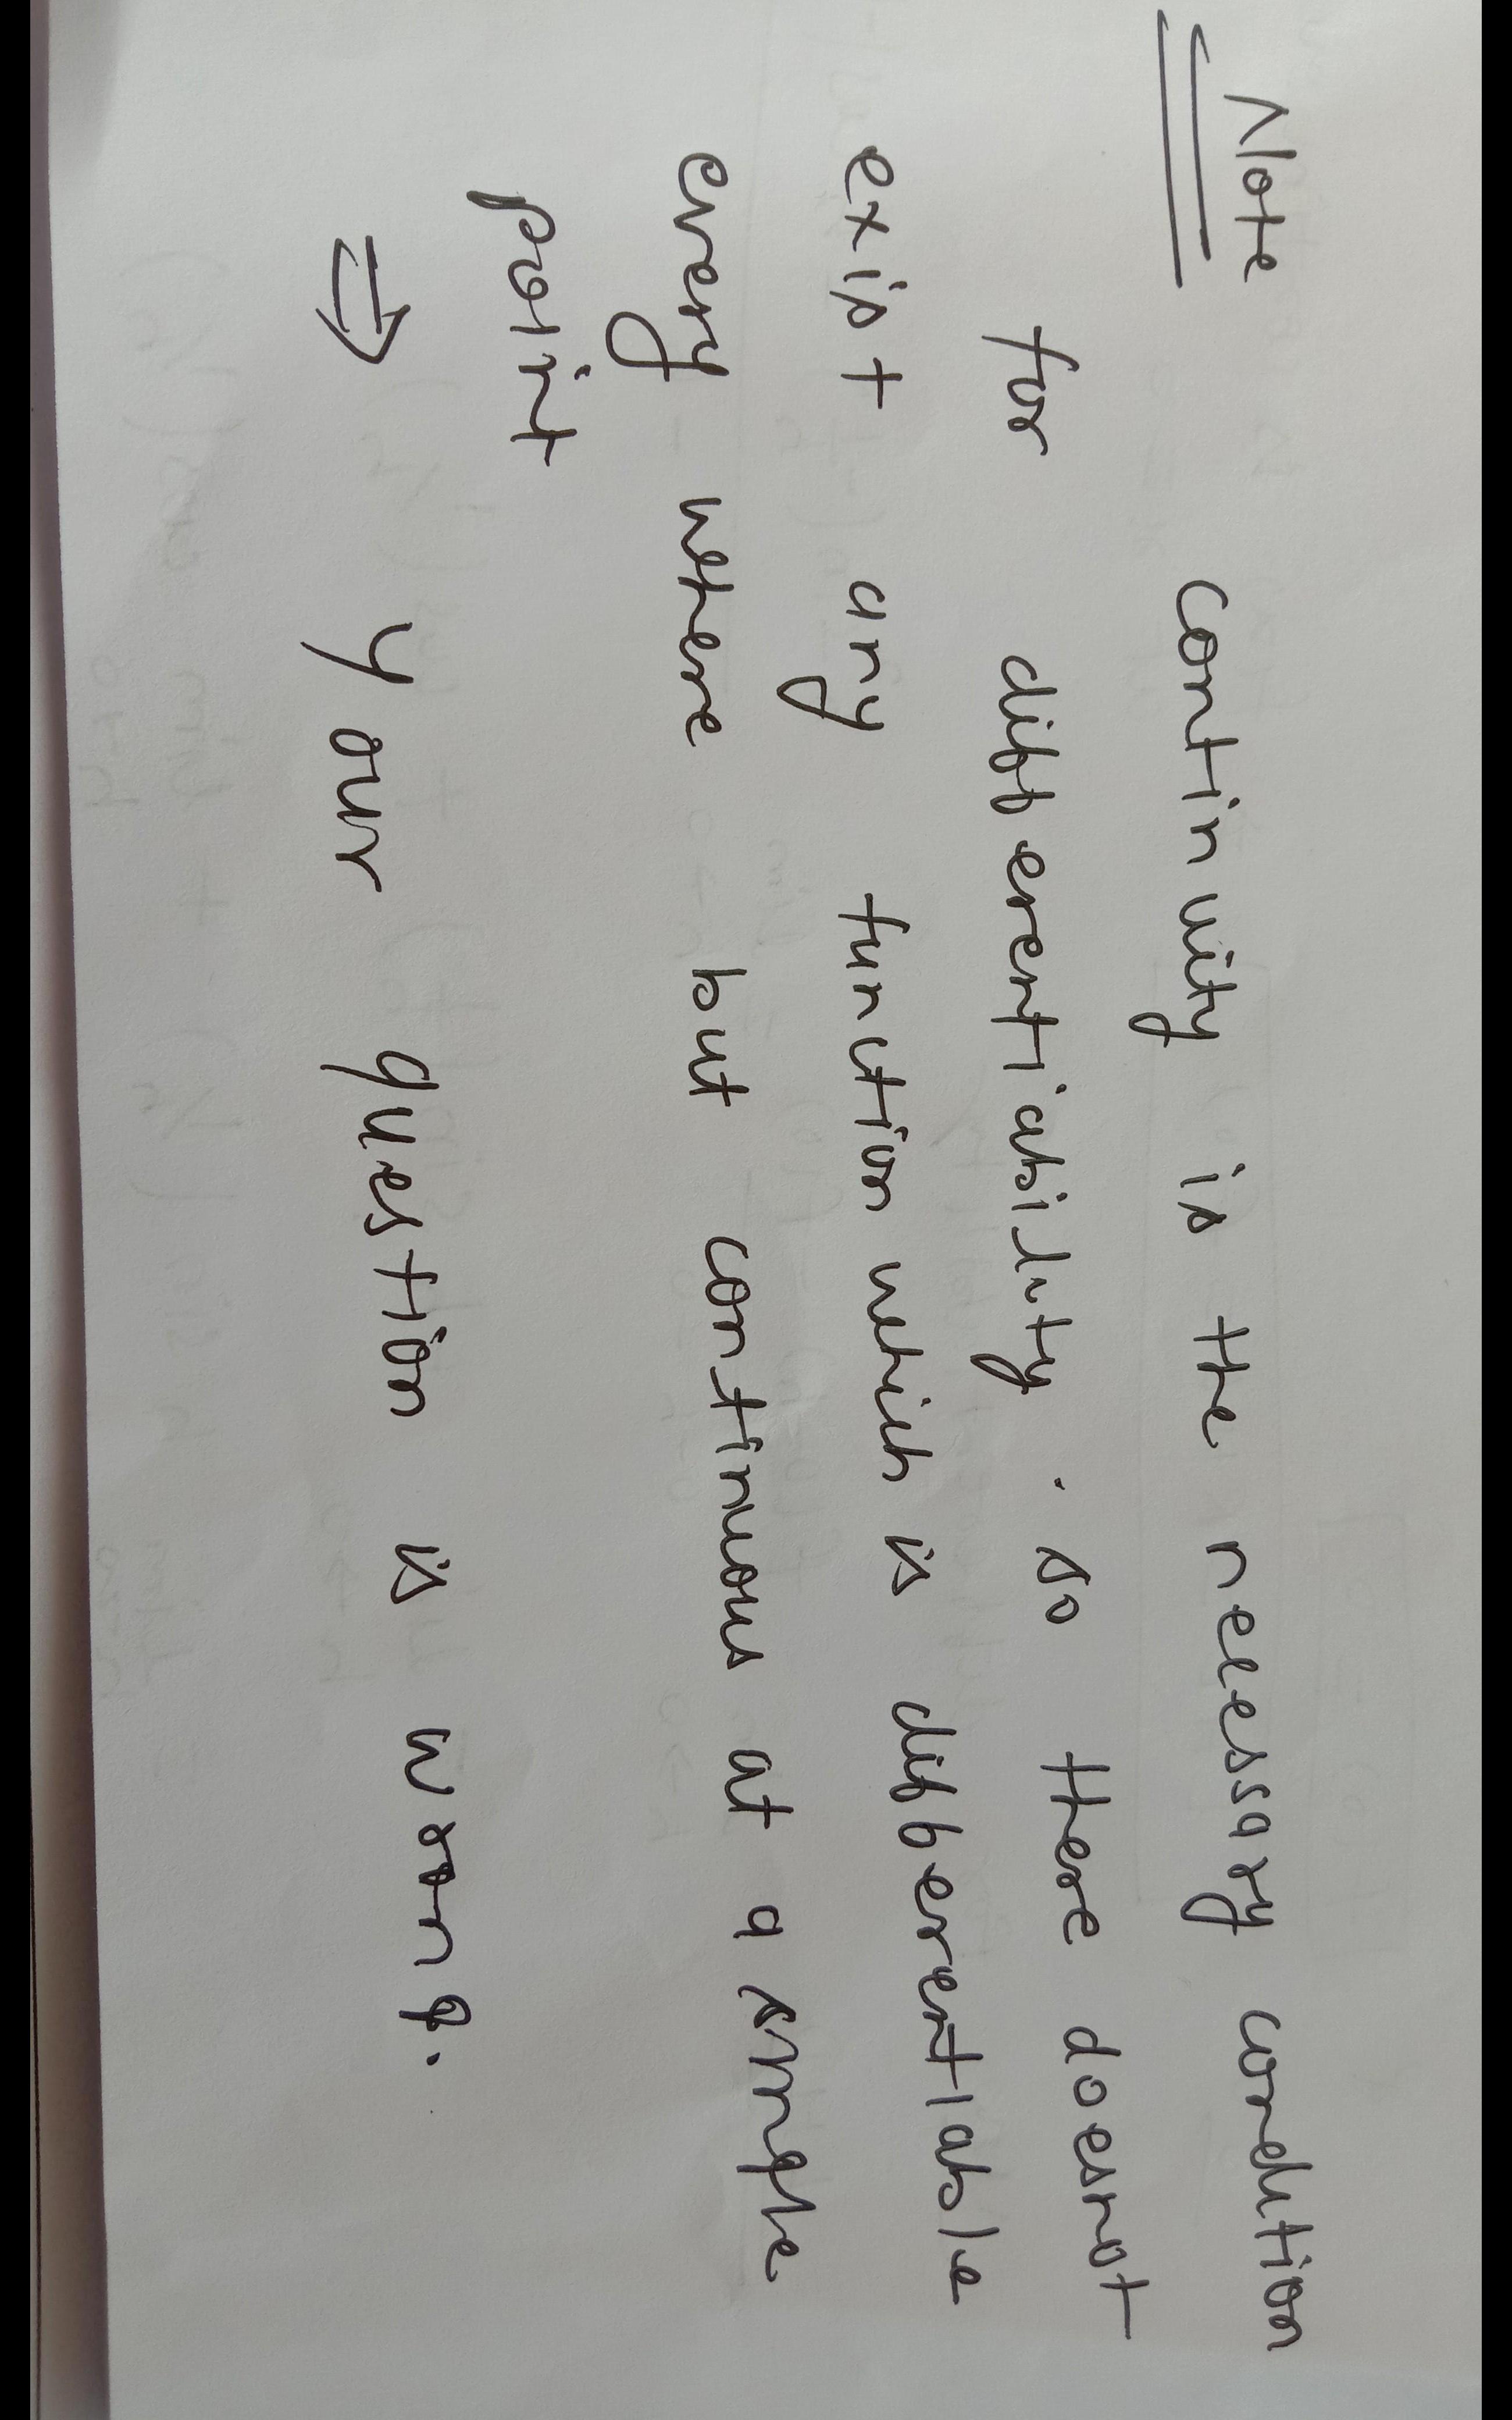 Note continuity is the necessary condition
for differentiability. so there doesnot
exist any function which is differentiable
every where but continuous at a single
point
⇒ your question is wrong.